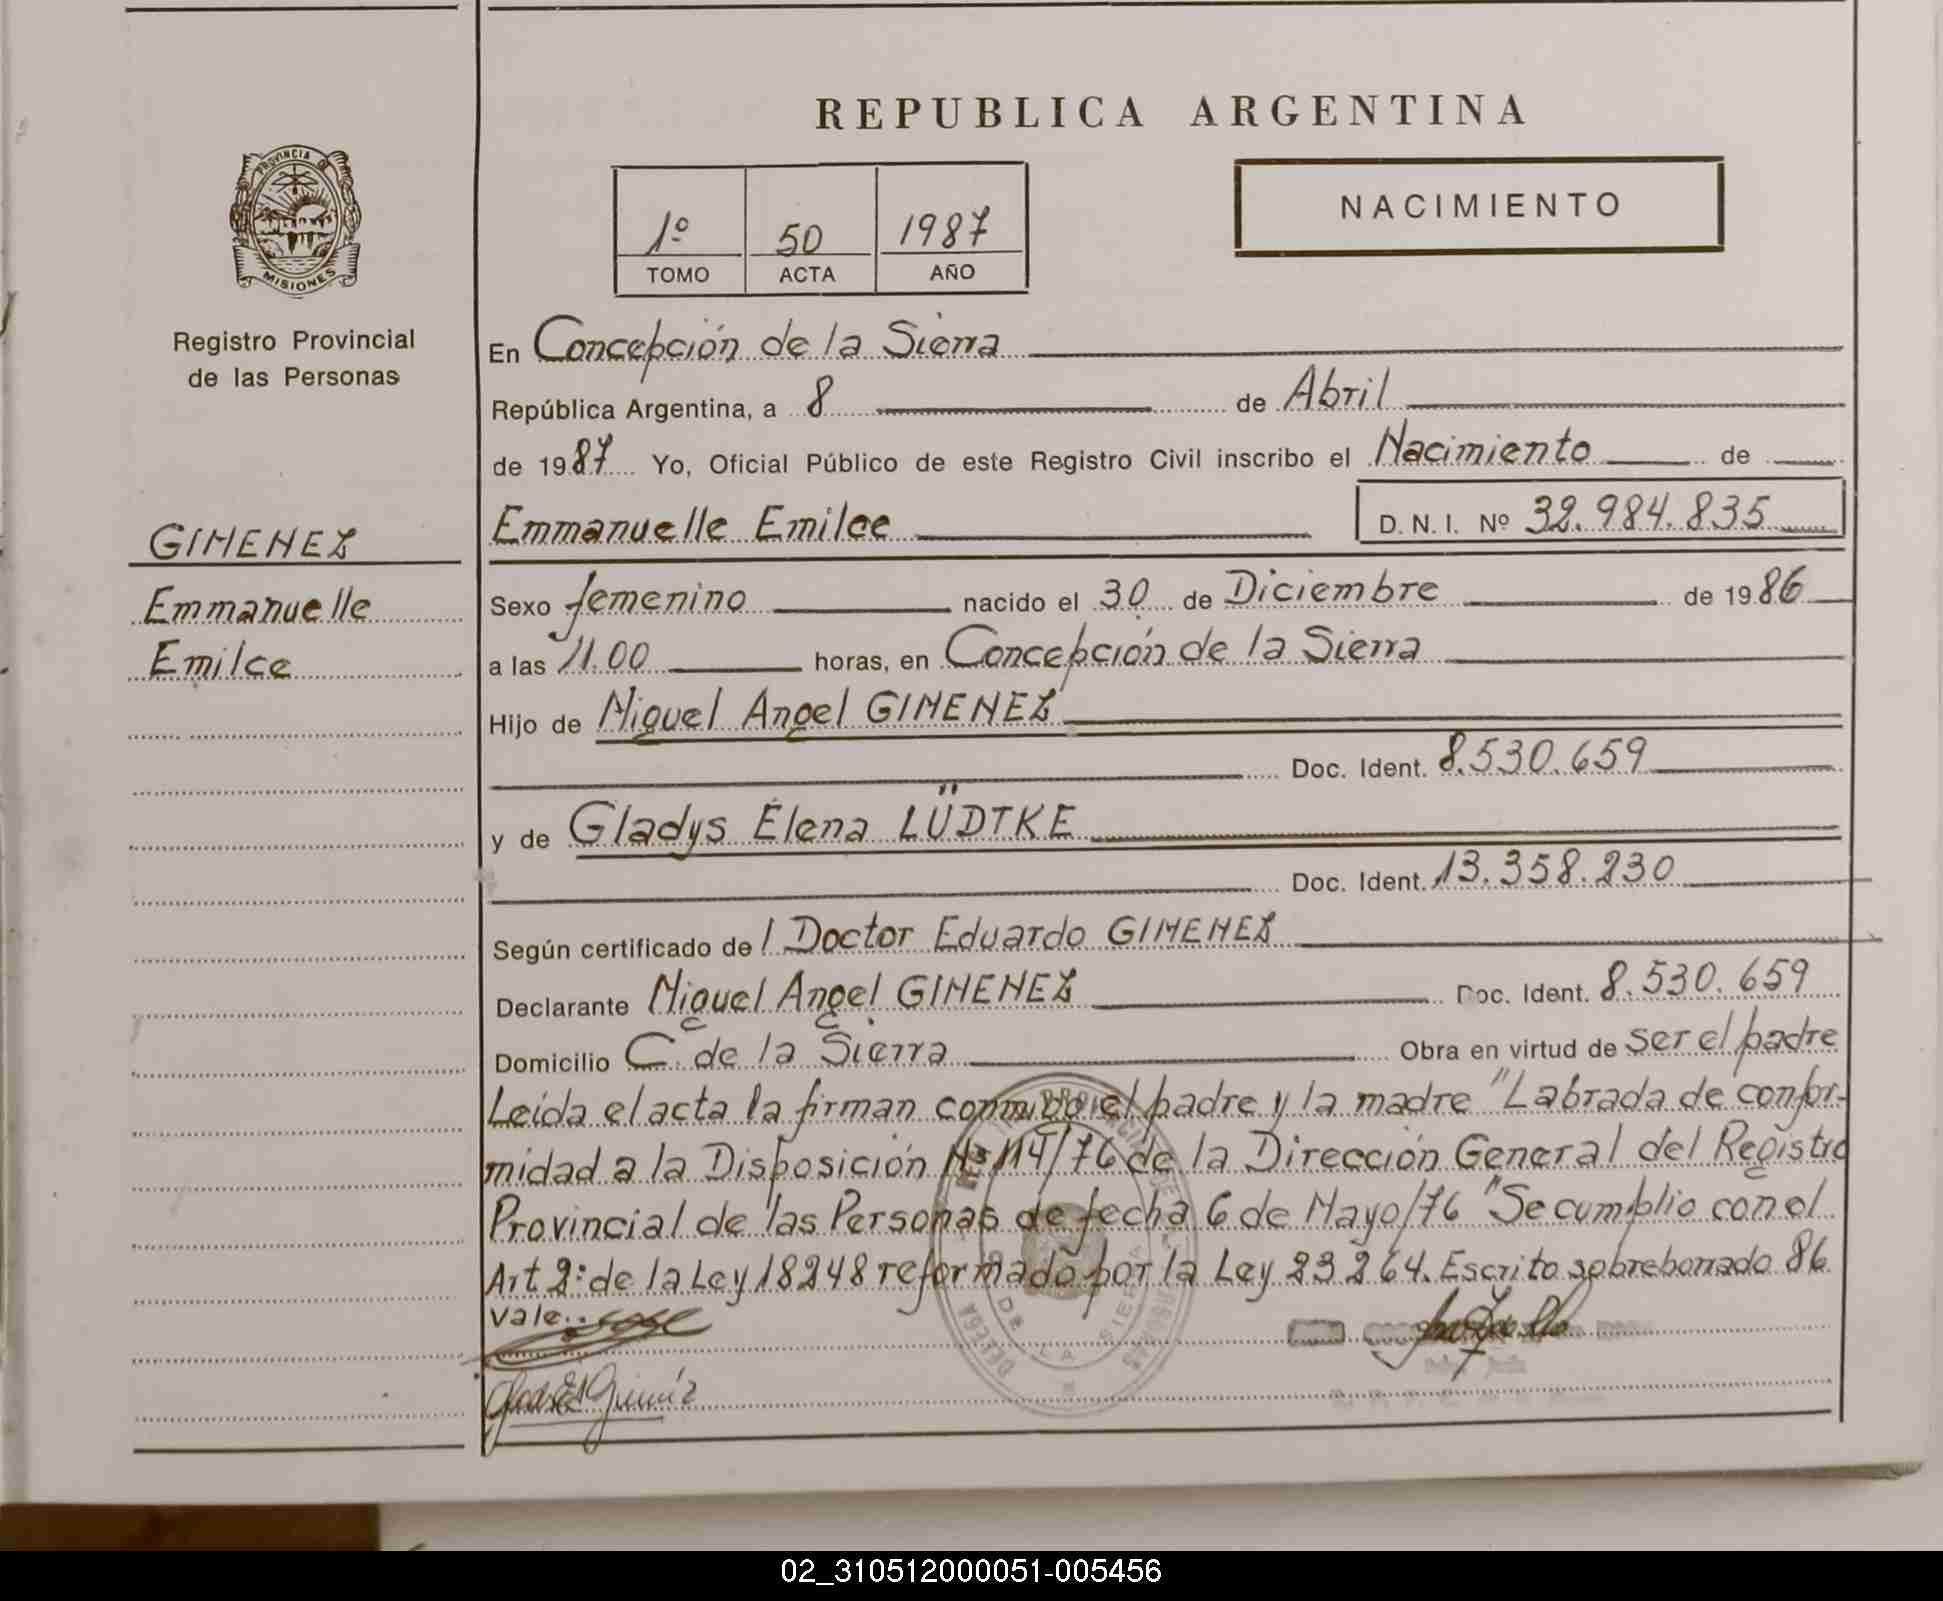 REPUBLICA ARGENTINA
PROVINCIA DE
MISIONES
Registro Provincial
de las Personas
GIMENEZ
Emmanuelle
Emilce
1º 50 1987
TOMO ACTA AÑO
NACIMIENTO
En Concepción de la Sierra
República Argentina, a 8 de Abril
de 1987 Yo, Oficial Público de este Registro Civil inscribo el Nacimiento de
Emmanuelle Emilce D. N. I. Nº 32.984.835
Sexo femenino nacido el 30 de Diciembre de 1986
a las 11.00 horas, en Concepción de la Sierra
Hijo de Miguel Angel GIMENEZ
Doc. Ident. 8.530.659
y de Gladys Elena LÜDTKE
Doc. Ident. 13.358.230
Según certificado de l Doctor Eduardo GIMENEZ
Declarante Miguel Angel GIMENEZ Doc. Ident. 8.530.659
Domicilio C. de la Sierra Obra en virtud de ser el padre
Leída el acta la firman conmigo el padre y la madre "Labrada de confor-
midad a la Disposición Nº 114/76 de la Dirección General del Registro
Provincial de las Personas de fecha 6 de Mayo/76 "Se cumplio con el
Art 2: de la Ley 18248 reformado por la Ley 23264. Escrito sobreborrado 86
Vale.
DE LA SIERRA
02_310512000051-005456